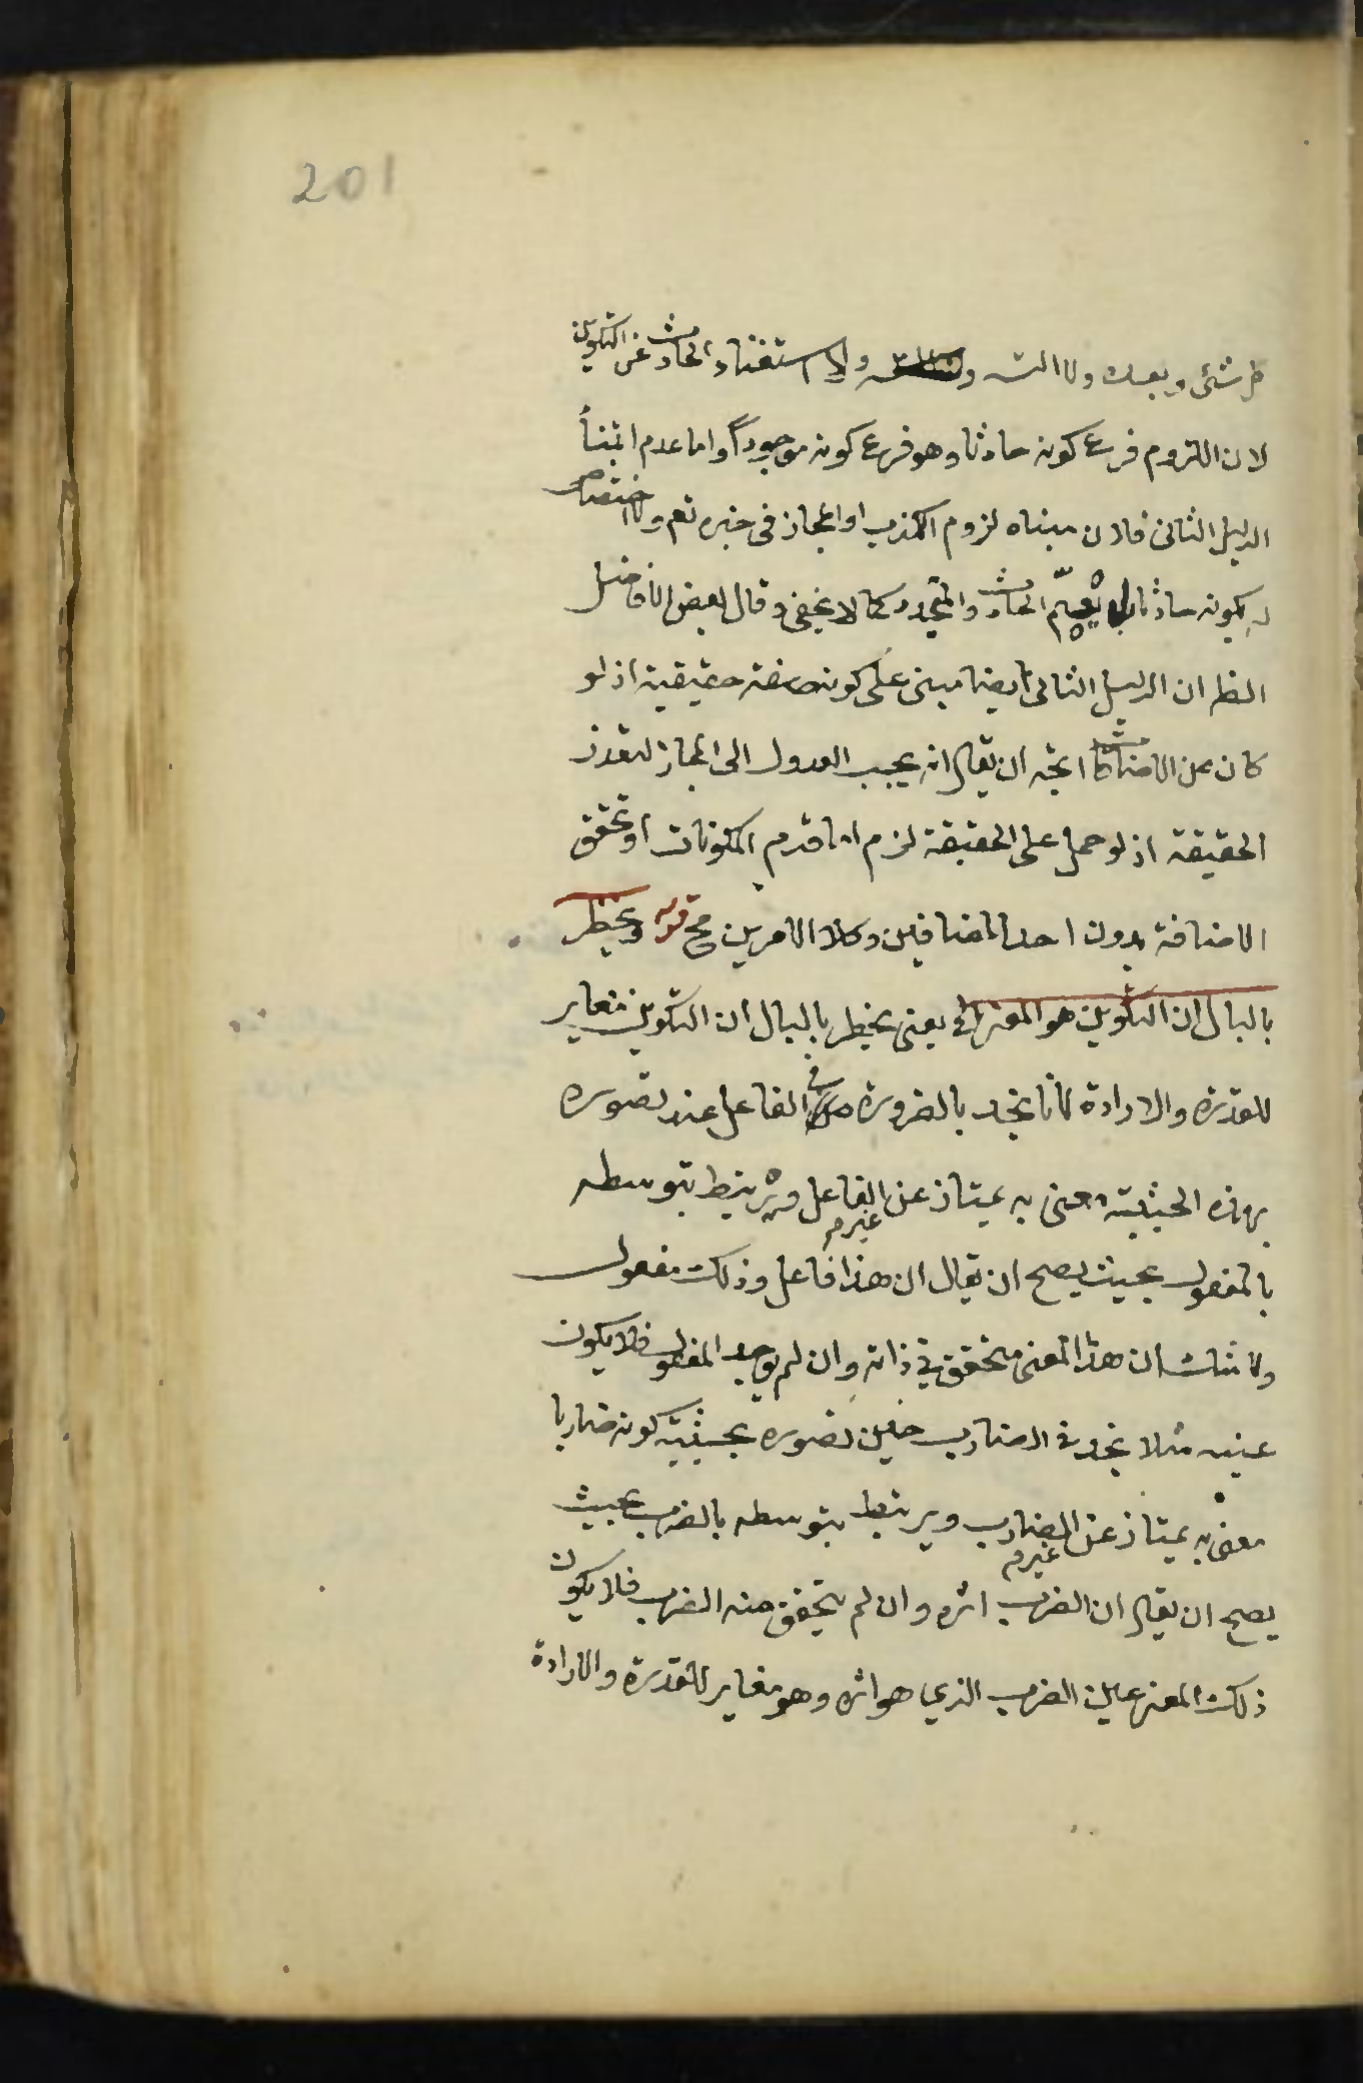 201
شئ و بعده ولا التسـ والا استغناء الحادث عن التكوين
لان اللزوم فرع كونه حادثا وهو فرع كونه موجوداً واما عدم ابتناء
الدليل الثانى فلان مبناه لزوم الكذب او المجاز فى خبره تعم ولا اختصاص
له بكونه حادثا بل يعم الحادث والمتجدد كما لا يخفى وقال بعض الافاضل
الظ ان الدليل الثانى ايضا مبنى على كونه صفة حقيقية اذ لو
كان من الاضافات اتجه ان يقال انه يجب العدول الى المجاز لتعذر
الحقيقة اذ لو حمل على الحقيقة لزم اما قدم المكونات او تحقق
الاضافة بدون احد المضافين وكلا الامرين مح قوله ويخطر
بالبال ان التكوين هو المعنى الخ يعنى يخطر بالبال ان التكوين مغاير
للقدرة والارادة لانا نجد بالضرورة فى الفاعل عند تصوره
بهذه الحيثية معنى به يمتاز عن غير الفاعل ويرتبط بتوسطه
بالمفعول بحيث يصح ان يقال ان هذا فاعل وذلك مفعول
ولا شك ان هذا المعنى متحقق فى ذاته وان لم يوجد المفعول فلا يكون
عينه مثلا نجد فى الضارب حين تصوره بحيثية كونه ضاربا
معنى به يمتاز عن غير الضارب ويرتبط بتوسطه بالضرب بحيث
يصح ان يقال ان الضرب اثره وان لم يتحقق منه الضرب فلا يكون
ذلك المعنى عين الضرب الذي هو اثره وهو مغاير للقدرة والارادة